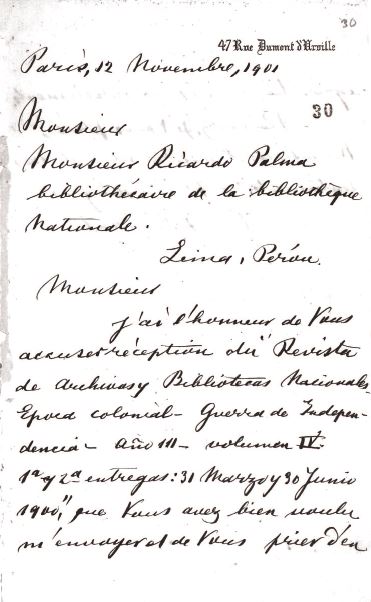 30
47 Rue Dumont d'Urville
Paris, 12 Novembre, 1901
30
Monsieur
Monsieur Ricardo Palma
bibliothésaire de la bibliothèque
Nationale.
Lima, Pérou.
Monsieur
j'ai l'honneur de Vous
accuser réception du "Revista
de Archivos y Bibliotecas Nacionales
Epoca colonial - Guerra de Indepen-
dencia - Año III - volumen IV.
1ª y 2ª entregas: 31 Marzo y 30 Junio
1900," que Vous avez bien voulu
m'envoyer et de Vous prier d'en